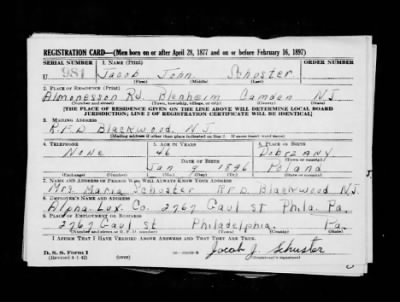 REGISTRATION CARD—(Men born on or after April 28, 1877 and on or before February 16, 1897)
SERIAL NUMBER 1. NAME (Print) ORDER NUMBER
U 981 Jacob John Schuster
(First) (Middle) (Last)
2. PLACE OF RESIDENCE (Print)
Almonesson Rd. Blenheim Camden N.J.
(Number and street) (Town, township, village, or city) (County) (State)
[THE PLACE OF RESIDENCE GIVEN ON THE LINE ABOVE WILL DETERMINE LOCAL BOARD
JURISDICTION; LINE 2 OF REGISTRATION CERTIFICATE WILL BE IDENTICAL]
3. MAILING ADDRESS
R.F.D Blackwood, N.J.
[Mailing address if other than place indicated on line 2. If same insert word same]
4. TELEPHONE 5. AGE IN YEARS 6. PLACE OF BIRTH
None 46 Dobrzany
DATE OF BIRTH (Town or county)
Jan 9 1896 Poland
(Exchange) (Number) (Mo.) (Day) (Yr.) (State or country)
7. NAME AND ADDRESS OF PERSON WHO WILL ALWAYS KNOW YOUR ADDRESS
Mrs Maria Schuster RFD Blackwood N.J.
8. EMPLOYER'S NAME AND ADDRESS
Alpha Lux. Co. 2767 Gaul st Phila. Pa.
9. PLACE OF EMPLOYMENT OR BUSINESS
2767 Gaul st Philadelphia Pa.
(Number and street or R. F. D. number) (Town) (County) (State)
I AFFIRM THAT I HAVE VERIFIED ABOVE ANSWERS AND THAT THEY ARE TRUE.
D. S. S. Form 1
Jacob J. Schuster